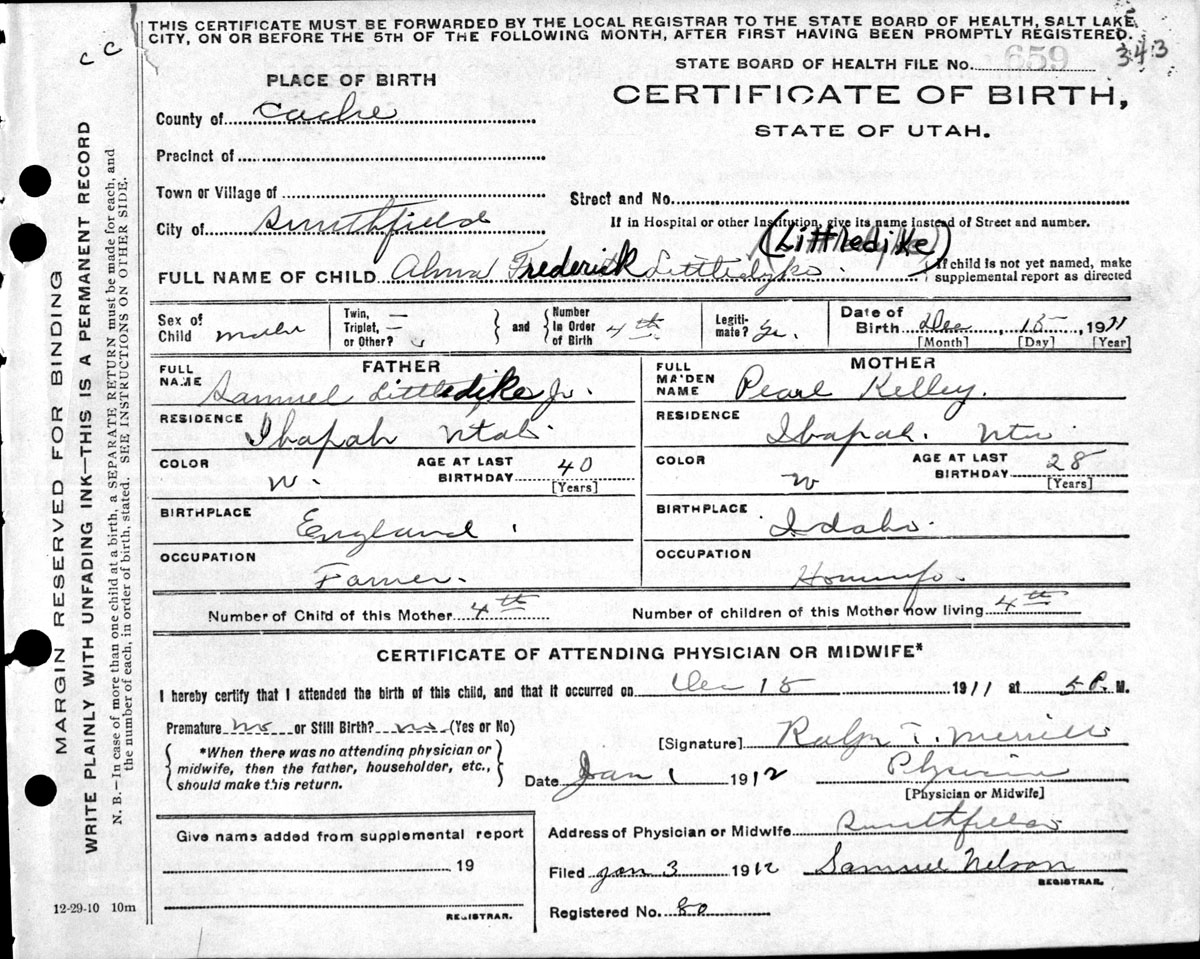 THIS CERTIFICATE MUST BE FORWARDED BY THE LOCAL REGISTRAR TO THE STATE BOARD OF HEALTH, SALT LAKE
CITY, ON OR BEFORE THE 5TH OF THE FOLLOWING MONTH, AFTER FIRST HAVING BEEN PROMPTLY REGISTERED.
343
C C
STATE BOARD OF HEALTH FILE No. 659
PLACE OF BIRTH
CERTIFICATE OF BIRTH,
STATE OF UTAH.
County of Cache
Precinct of
Town or Village of
Street and No.
City of Smithfield
If in Hospital or other Institution, give its name instead of Street and number.
(Littledike)
FULL NAME OF CHILD Alma Frederick Littledyke
If child is not yet named, make
supplemental report as directed
Sex of
Child Male
Twin,
Triplet,
or Other?
and
Number
in Order
of Birth 4th
Legiti-
mate?
Date of
Birth Dec, 15, 1911
[Month] [Day] [Year]
FATHER
FULL
NAME Samuel Littledike Jr.
RESIDENCE
Ibapah Utah
COLOR
W.
AGE AT LAST
BIRTHDAY 40
[Years]
BIRTHPLACE
England
OCCUPATION
Farmer.
MOTHER
FULL
MAIDEN
NAME Pearl Kelley
RESIDENCE
Ibapah.
COLOR
W
AGE AT LAST
BIRTHDAY 28
[Years]
BIRTHPLACE
Idaho.
OCCUPATION
Number of Child of this Mother 4th
Number of children of this Mother now living 4th
CERTIFICATE OF ATTENDING PHYSICIAN OR MIDWIFE*
I hereby certify that I attended the birth of this child, and that it occurred on Dec 15 1911 at 5 P. M.
Premature no or Still Birth? no (Yes or No)
*When there was no attending physician or
midwife, then the father, householder, etc.,
should make this return.
[Signature] Ralph T. Merrill
Date Jan 1 1912 Physician
[Physician or Midwife]
Give name added from supplemental report
19
REGISTRAR.
Address of Physician or Midwife Smithfield
Filed Jan 3 1912 Samuel Nelson
REGISTRAR.
Registered No. 80
12-29-10 10m
MARGIN RESERVED FOR BINDING
WRITE PLAINLY WITH UNFADING INK—THIS IS A PERMANENT RECORD
N. B.—In case of more than one child at a birth, a SEPARATE RETURN must be made for each, and
the number of each, in order of birth, stated. SEE INSTRUCTIONS ON OTHER SIDE.